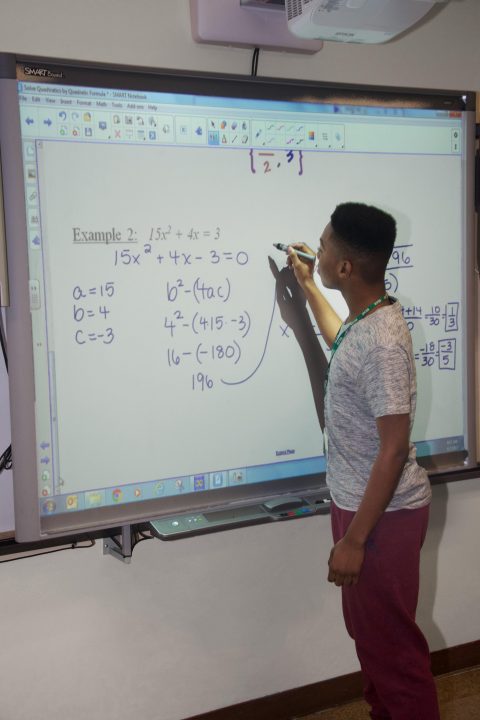 SMART Board
Solve Quadratics by Quadratic Formula.* - SMART Notebook
File Edit View Insert Format Math Tools Add-ons Help
2 , 3
Example 2: 15x² + 4x = 3
15x² + 4x - 3 = 0
a = 15
b = 4
c = -3
b² - (4ac)
4² - (4·15·-3)
16 - (-180)
196
x
196
5)
+14
10/30
1/3
= -18/30
-3/5